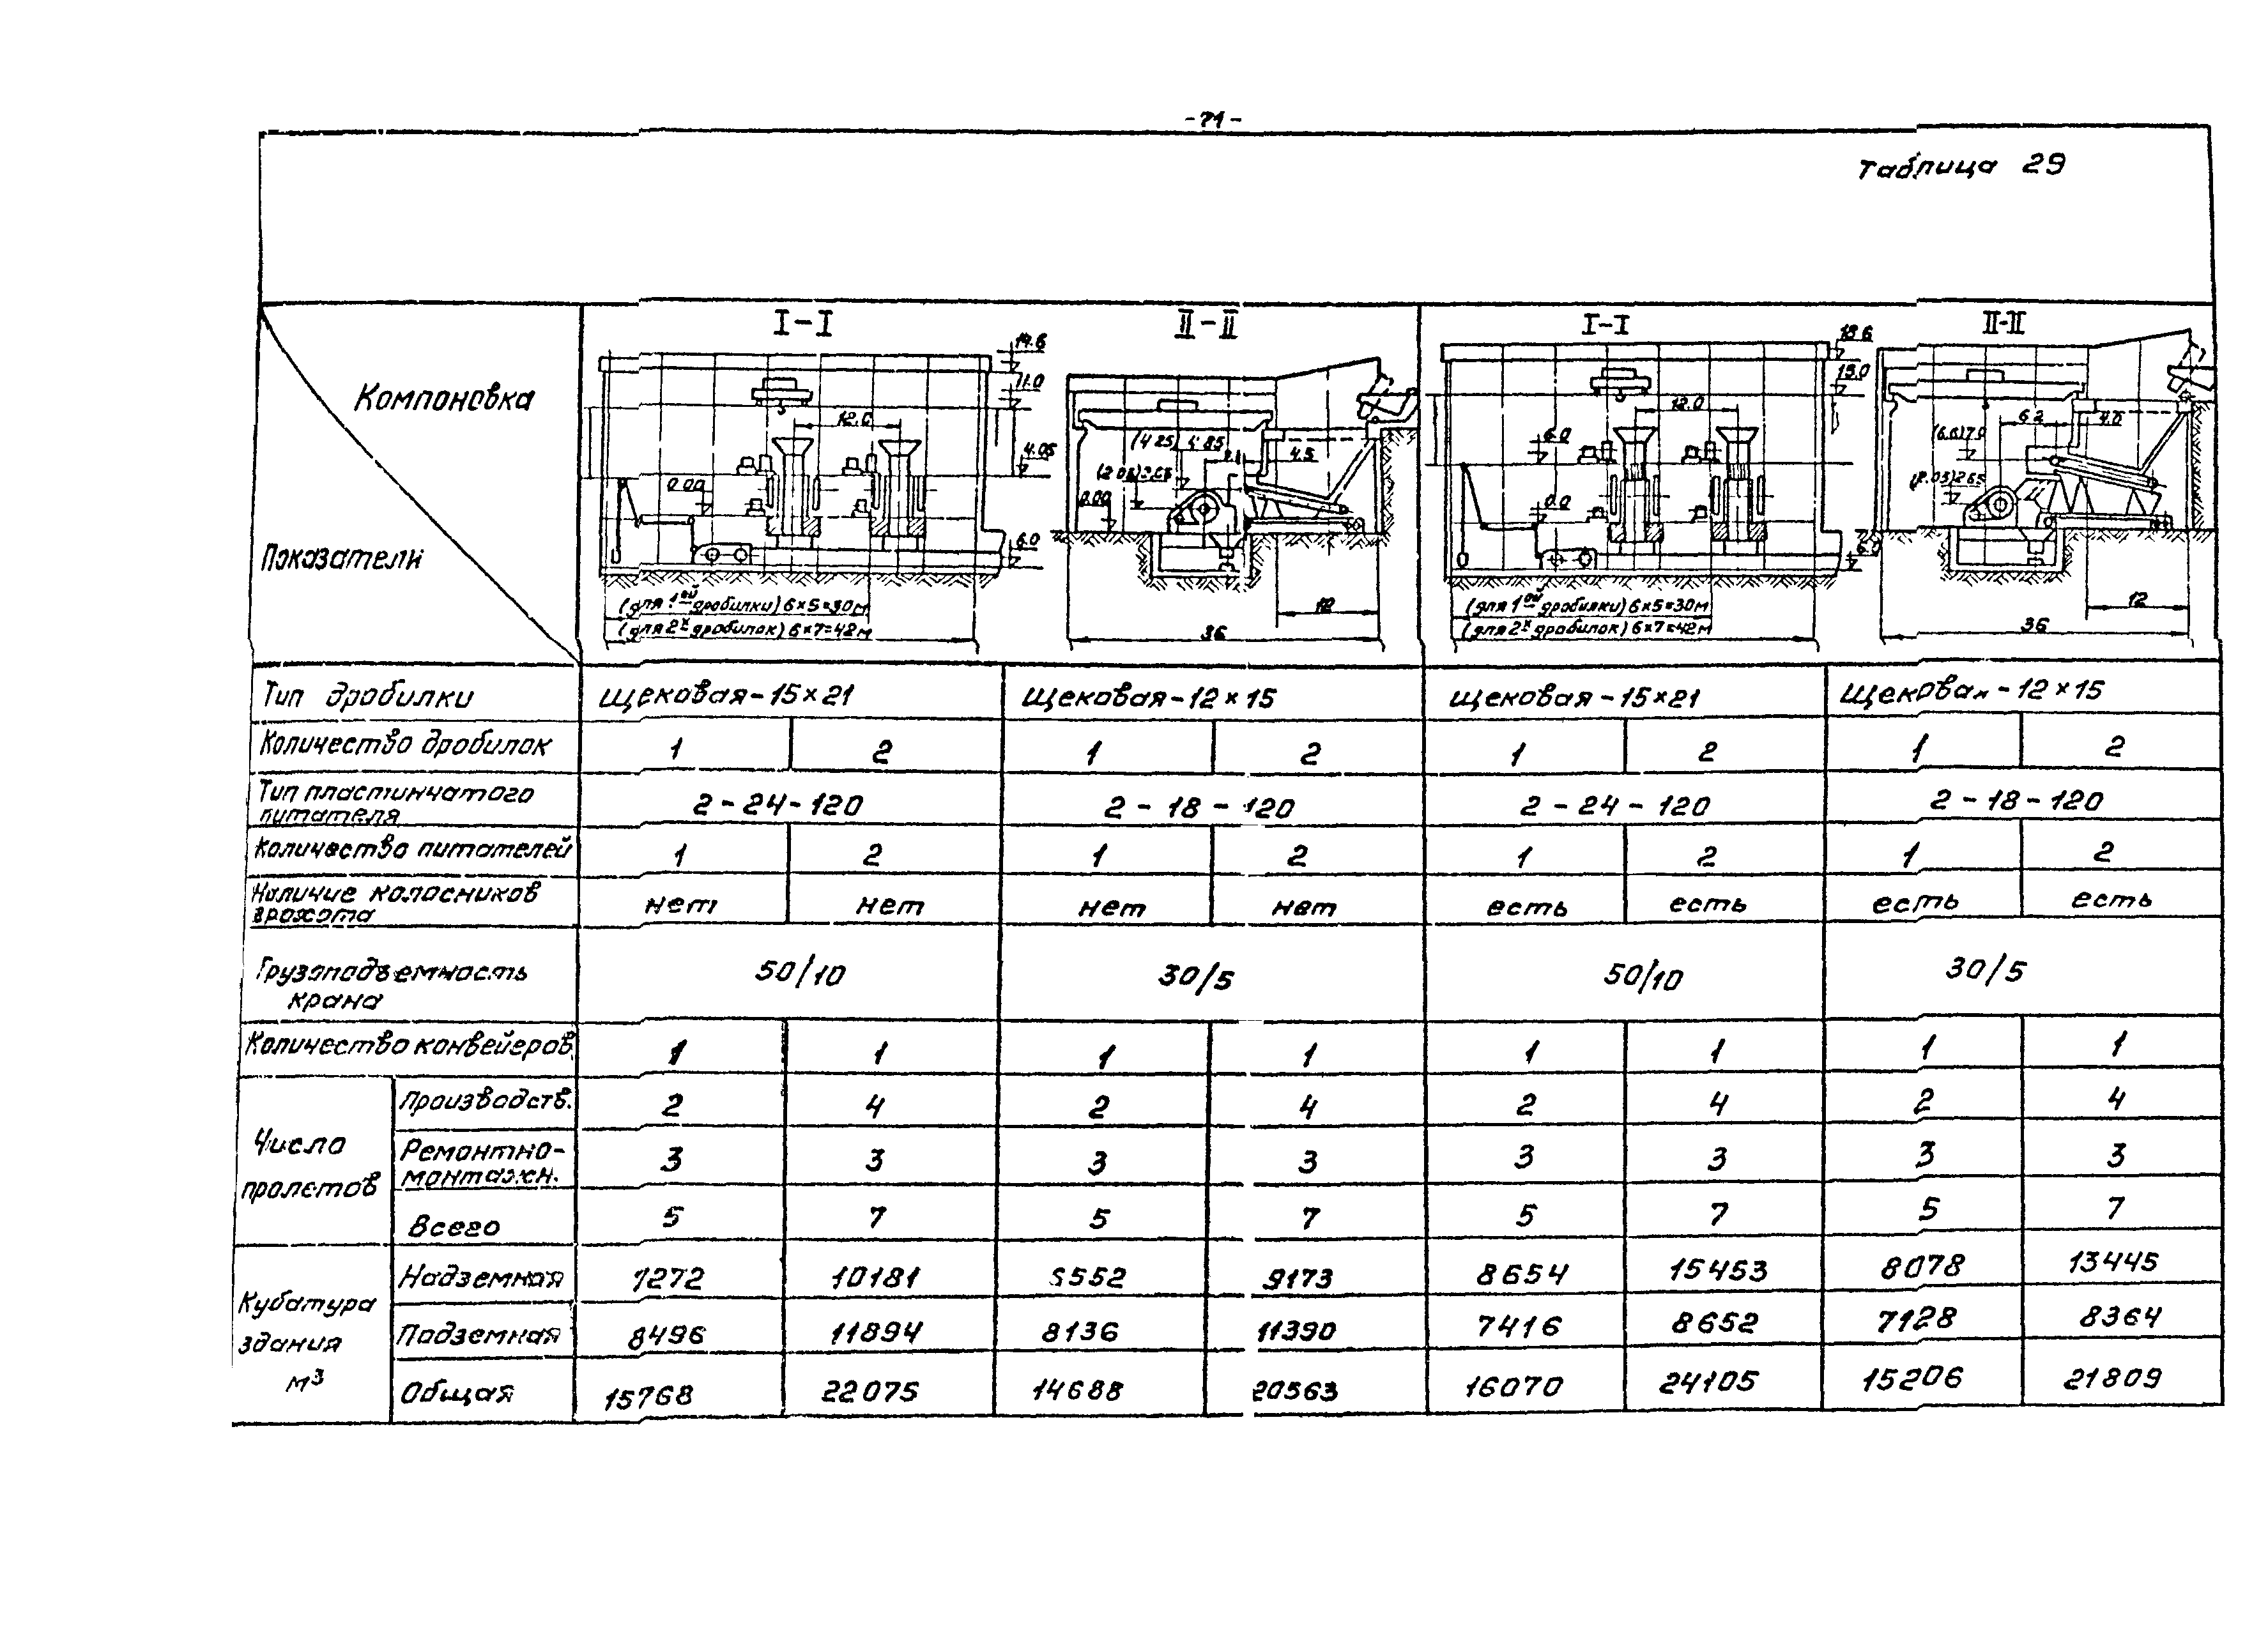 -71-
Таблица 29
I-I II-II I-I II-II
Компоновка
Показатели
14.6
11.0
12.0
4.05
0.00
6.0
(для 1ой дробилки) 6×5=30м
(для 2х дробилок) 6×7=42м
(4.25) 4.85
4.5
0.00
12
36
18.6
15.0
12.0
6.0
0.0
(для 1ой дробилки) 6×5=30м
(для 2х дробилок) 6×7=42м
6.2
4.0
(6.6) 7.0
(2.05) 2.65
12
36
Тип дробилки щековая-15×21 щековая-12×15 щековая-15×21 щековая-12×15
Количество дробилок 1 2 1 2 1 2 1 2
Тип пластинчатого
питателя 2-24-120 2-18-120 2-24-120 2-18-120
Количество питателей 1 2 1 2 1 2 1 2
Наличие колосников
грохота нет нет нет нет есть есть есть есть
Грузоподъемность
крана 50/10 30/5 50/10 30/5
Количество конвейеров 1 1 1 1 1 1 1 1
Число
пролетов
Производств. 2 4 2 4 2 4 2 4
Ремонтно-
монтажн. 3 3 3 3 3 3 3 3
Всего 5 7 5 7 5 7 5 7
Кубатура
здания
м³
Надземная 7272 10181 6552 9173 8654 15453 8078 13445
Подземная 8496 11894 8136 11390 7416 8652 7128 8364
Общая 15768 22075 14688 20563 16070 24105 15206 21809